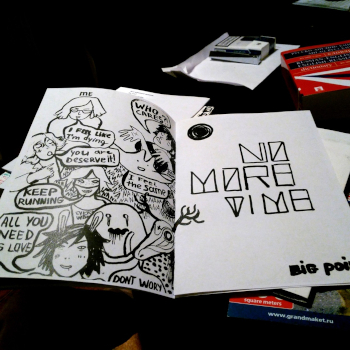 ME
WHO CARES?
I FEEL LIKE
I'm dying
you are
DESERVE it!
I FEEL
the same
KEEP
RUNNING
ALL YOU
NEED
IS LOVE
DON'T WORY
NO
MORE
TIME
BIG POI
dictionary
square meters
www.grandmaket.ru